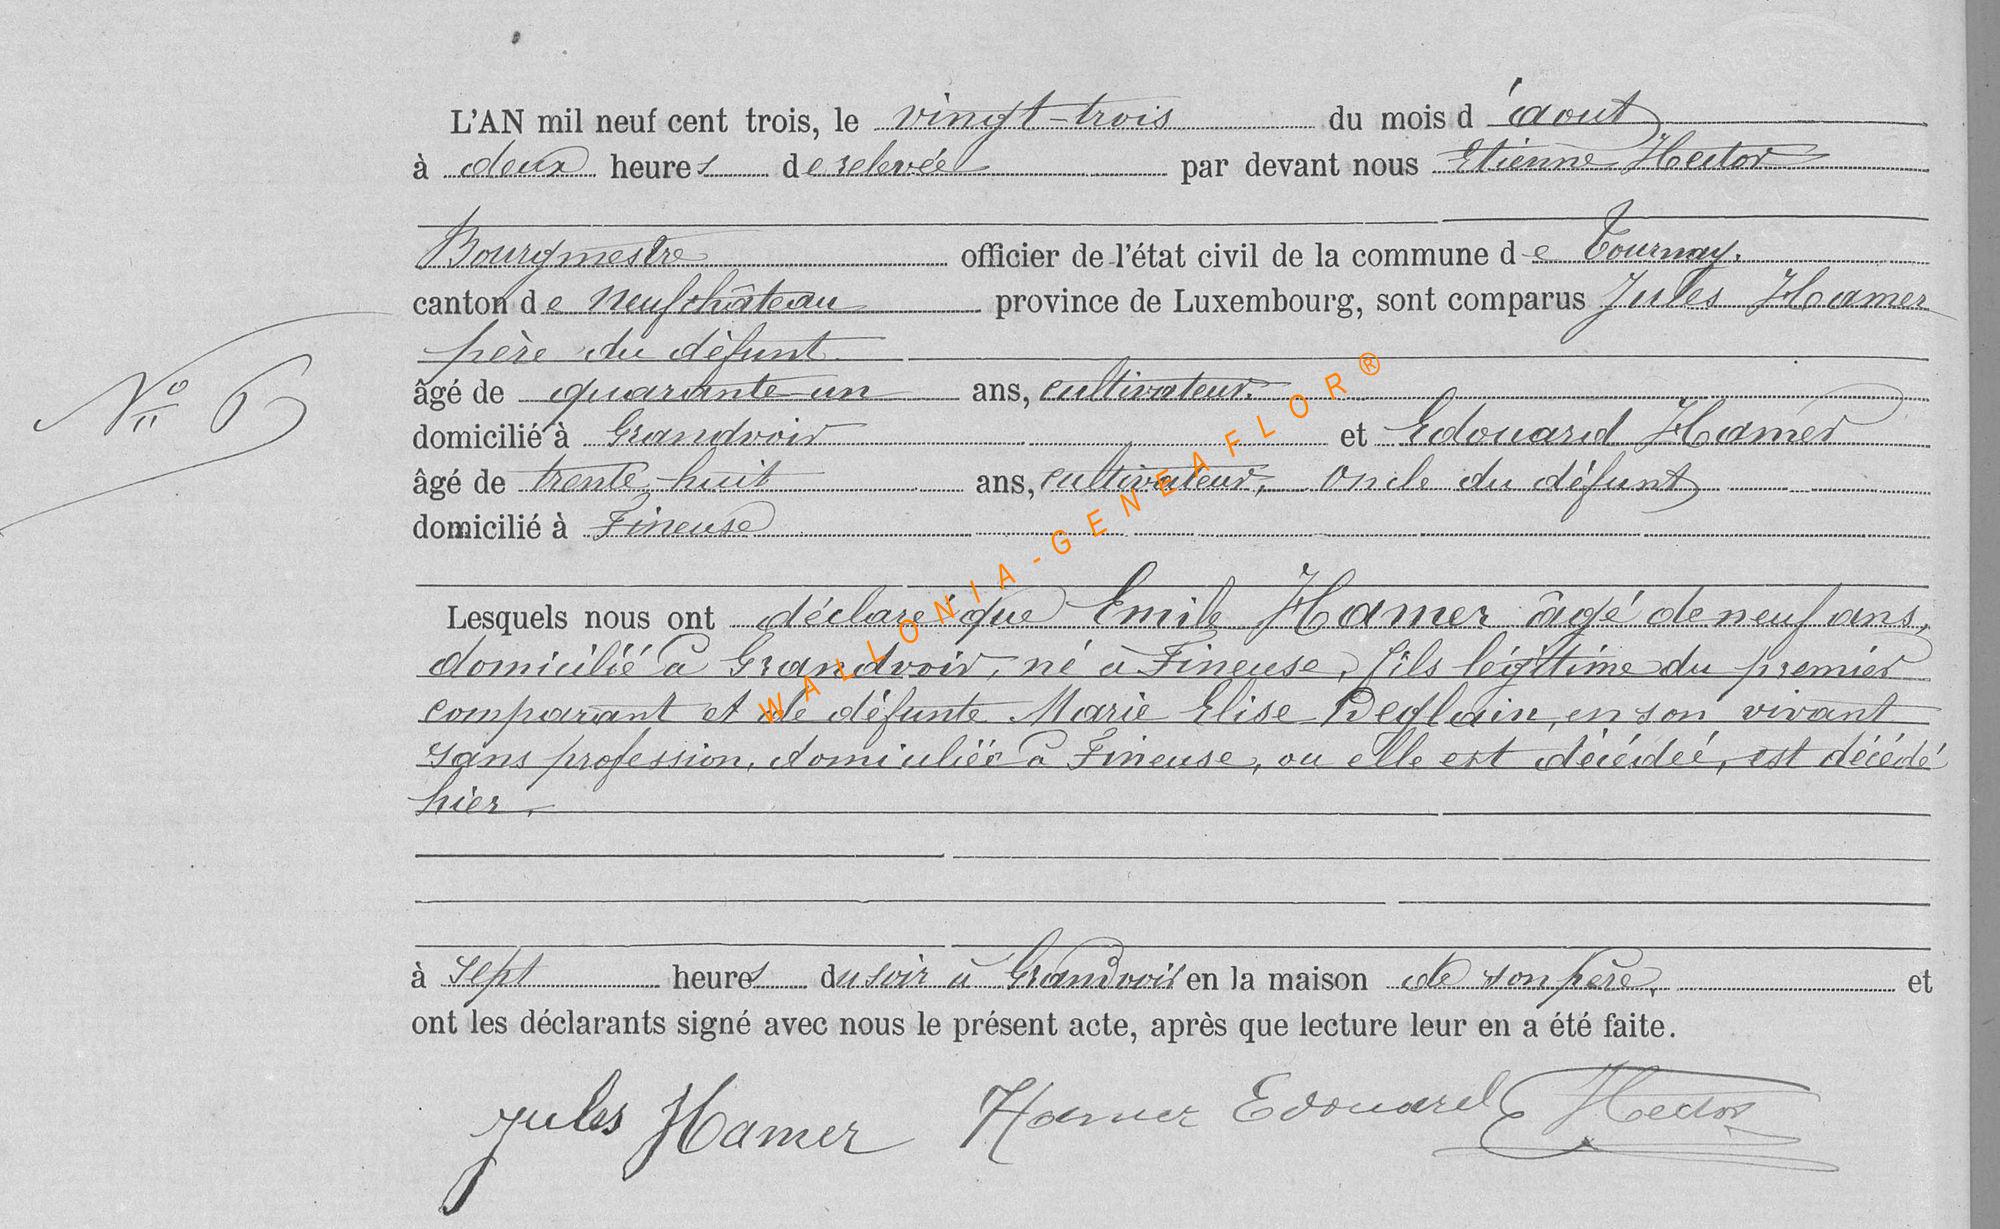 L'AN mil neuf cent trois, le vingt-trois du mois d'août
à deux heures de relevée par devant nous Etienne Hector
Bourgmestre officier de l'état civil de la commune de Tournay.
canton de Neufchâteau province de Luxembourg, sont comparus Jules Hamer
père du défunt
âgé de quarante-un ans, cultivateur.
N° 6
domicilié à Grandvoir et Edouard Hamer
âgé de trente-huit ans, cultivateur, oncle du défunt
domicilié à Fineuse
Lesquels nous ont déclaré que Emile Hamer âgé de neuf ans,
domicilié à Grandvoir, né à Fineuse, fils légitime du premier
comparant et de défunte Marie Elise Deglain, en son vivant
sans profession, domiciliée à Fineuse, ou elle est décédée, est décédé
hier.
à sept heures du soir à Grandvoir en la maison de son père, et
ont les déclarants signé avec nous le présent acte, après que lecture leur en a été faite.
Jules Hamer Hamer Edouard E Hector
WALLONIA-GENEAFLOR®